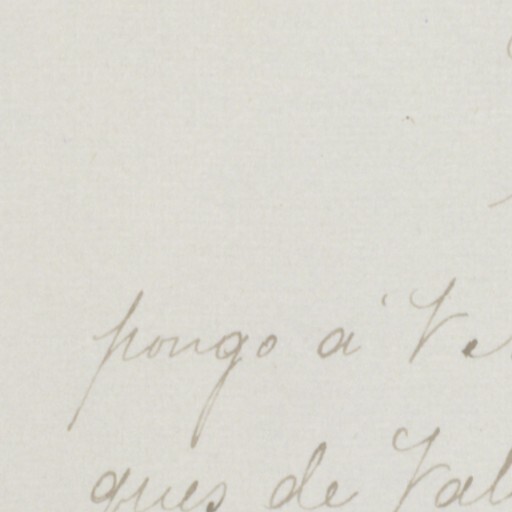 pongo á Ve
ques de Val